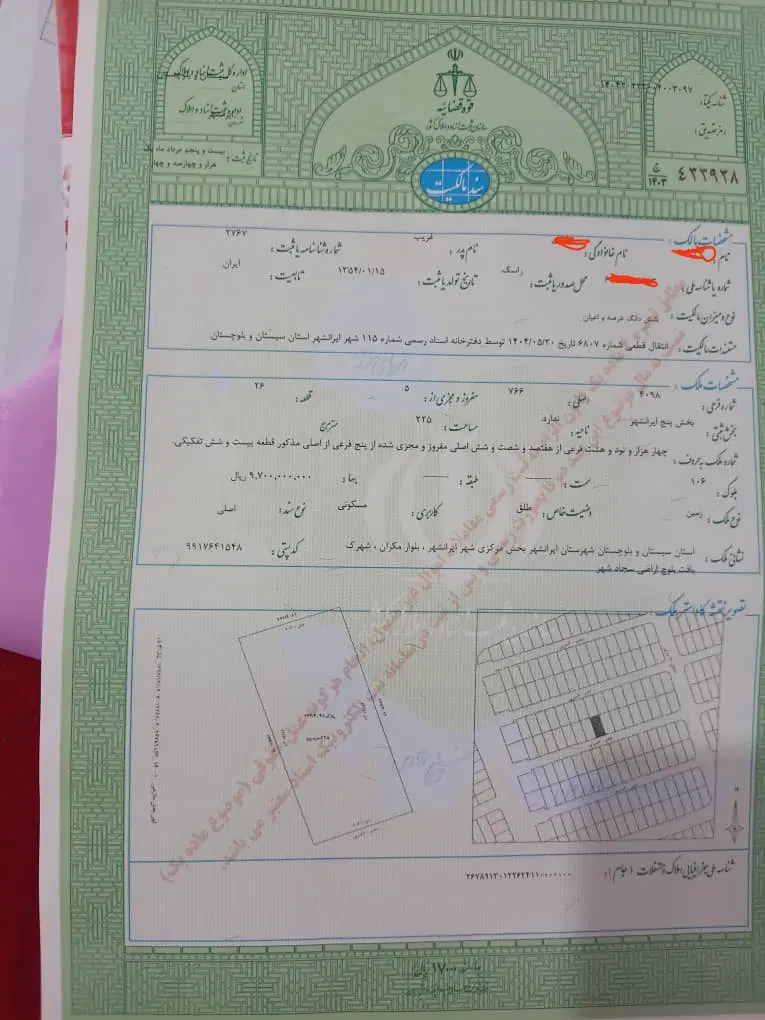 اداره کل ثبت اسناد و املاک
استان
اداره ثبت اسناد و املاک
تاریخ ثبت : بیست و پنجم مرداد ماه یک هزار و چهارصد و چهار
قوه قضائیه
سازمان ثبت اسناد و املاک کشور
سند مالکیت
شناسه یکتا :
رمز تصدیق :
۴۳۳۹۳۸ ج ۱۴۰۳
مشخصات مالک :
نام : نام خانوادگی : نام پدر : غریب شماره شناسنامه یا ثبت : ۲۷۶۷
شماره یا شناسه ملی : محل صدور یا ثبت : راسک تاریخ تولد یا ثبت : ۱۳۵۴/۰۱/۱۵ تابعیت : ایران
نوع و میزان مالکیت : شش دانگ عرصه و اعیان
مستندات مالکیت : انتقال قطعی شماره ۶۸۰۷ تاریخ ۱۴۰۴/۰۵/۲۰ توسط دفترخانه اسناد رسمی شماره ۱۱۵ شهر ایرانشهر استان سیستان و بلوچستان
مشخصات ملک :
شماره فرعی : ۴۰۹۸ اصلی : ۷۶۶ مفروز و مجزی از : ۵ قطعه : ۲۶
بخش ثبتی : بخش پنج ایرانشهر ناحیه : ندارد مساحت : ۲۲۵ مترمربع
شماره ملک به حروف : چهار هزار و نود و هشت فرعی از هفتصد و شصت و شش اصلی مفروز و مجزی شده از پنج فرعی از اصلی مذکور قطعه بیست و شش تفکیکی.
بلوک : ۱۰۶ سمت : ــــ طبقه : ــــ بها : ۹,۷۰۰,۰۰۰,۰۰۰ ریال
نوع ملک : زمین وضعیت خاص : طلق کاربری : مسکونی نوع سند : اصلی
نشانی ملک : استان سیستان و بلوچستان شهرستان ایرانشهر بخش مرکزی شهر ایرانشهر ، بلوار مکران ، شهرک بافت بلوچ اراضی سجاد شهر کدپستی : ۹۹۱۷۶۴۱۵۴۸
تصویر نقشه کاداستر ملک
شناسه ملی جغرافیایی املاک و مستغلات (جام) :